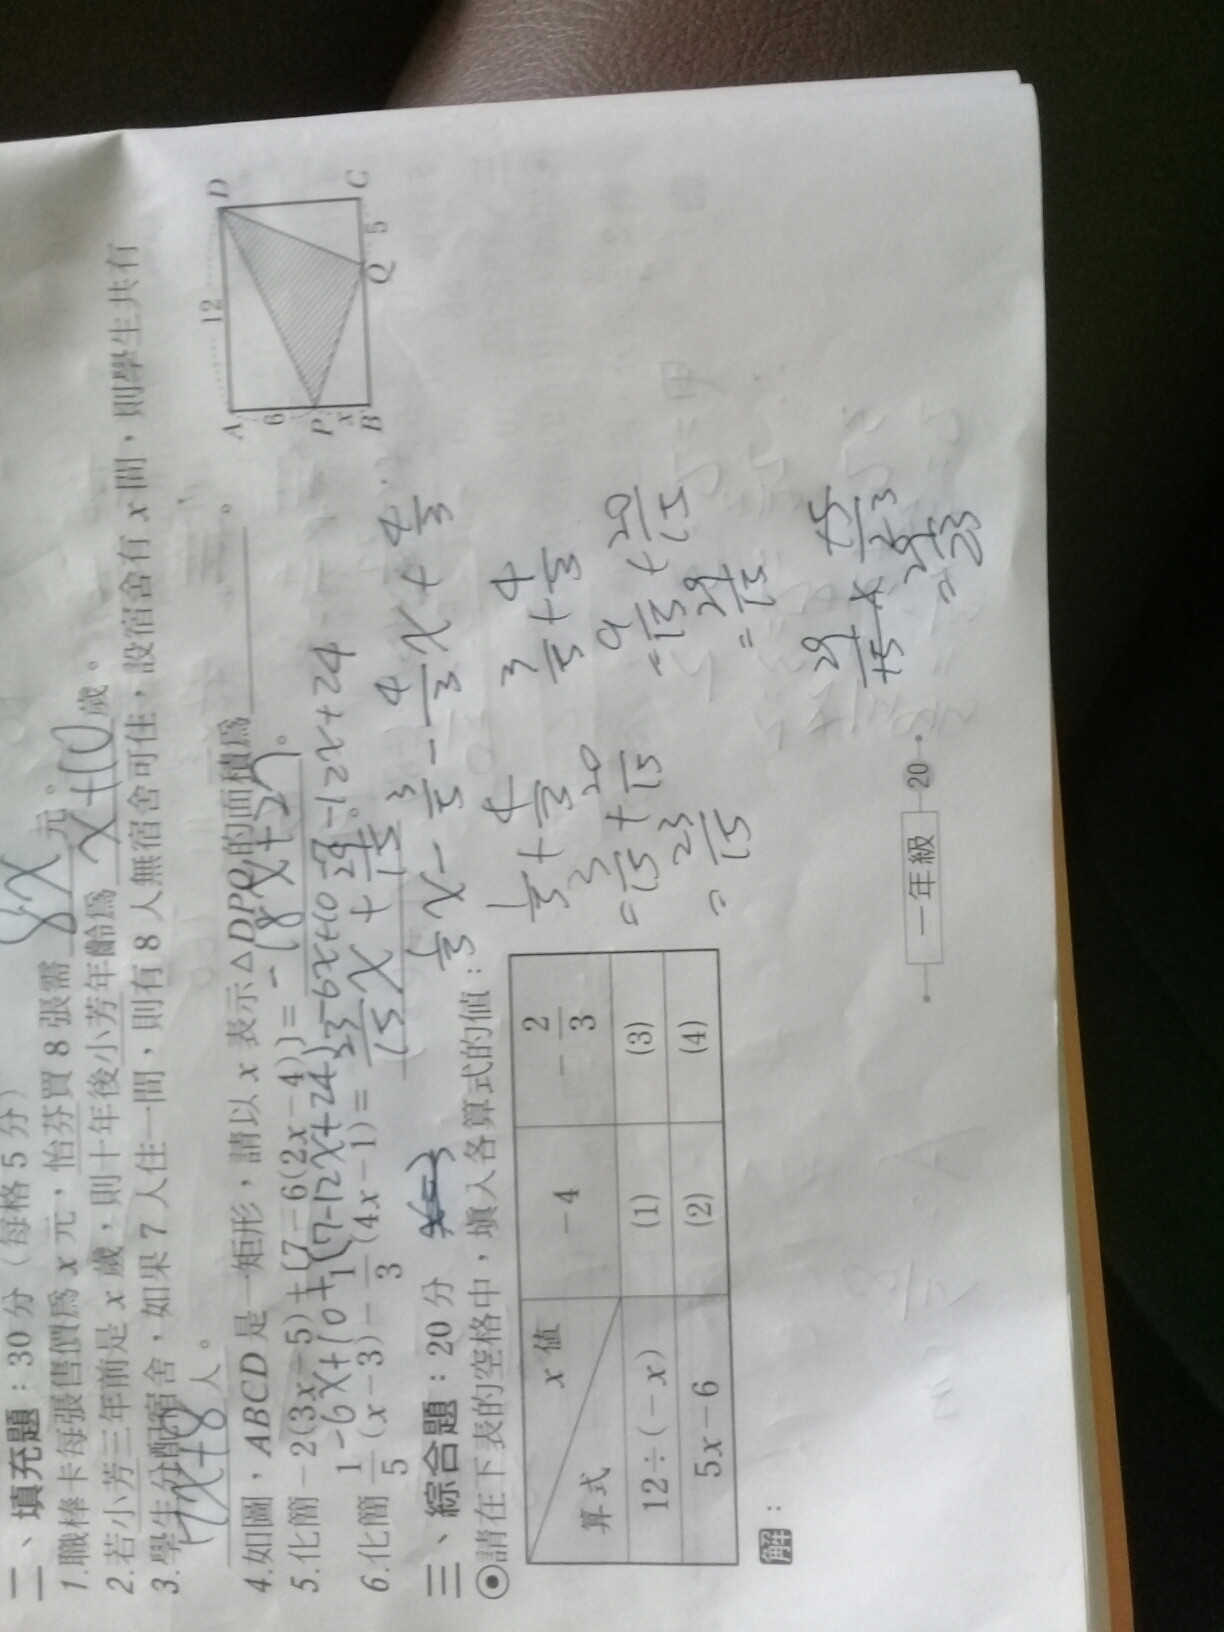 二、填充題：30分（每格5分）
1.職棒卡每張售價為 x 元，怡芬買 8 張需 8x 元。
2.若小芳三年前是 x 歲，則十年後小芳年齡為 x+10 歲。
3.學生分配宿舍，如果 7 人住一間，則有 8 人無宿舍可住，設宿舍有 x 間，則學生共有
7x+8 人。
4.如圖，ABCD 是一矩形，請以 x 表示△DPQ的面積為 。
A 12 D
6
P
x
B Q 5 C
5.化簡 −2(3x−5)+[7−6(2x−4)]= −18x+27 。
−6x+10+(7−12x+24)
−6x+10+7−12x+24
6.化簡 1/5 (x−3)− 1/3 (4x−1)= 23/15 x + 29/15 。
1/5 x − 3/5 − 4/3 x + 4/3
三、綜合題：20分
◉請在下表的空格中，填入各算式的值：
x 值 −4 −2/3
算式
12÷(−x) (1) (3)
5x−6 (2) (4)
1/5 + 4/3
= 3/15 + 20/15
= 23/15
3/5 + 4/3
= 9/15 + 20/15
= 29/15
29/15 × 15/23
= 29/23
解：
一年級 20